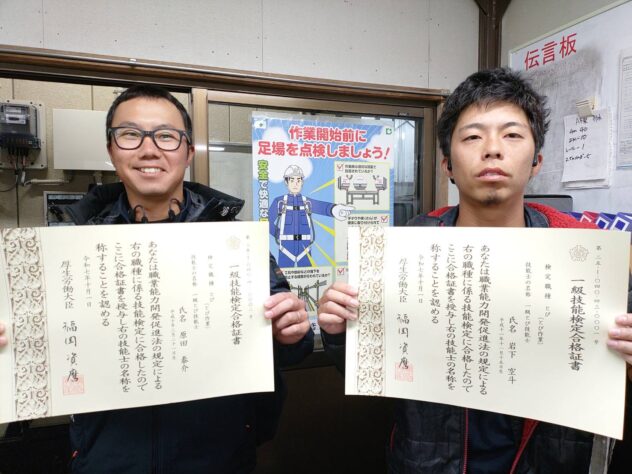 伝言板
作業開始前に
足場を点検しましょう！
安全で快適な
一級技能検定合格証書
検定職種 とび
(とび作業)
技能士の名称 一級とび技能士
氏名 原田 泰介
あなたは職業能力開発促進法の規定による
右の職種に係る技能検定に合格したので
ここに合格証書を授与し右の技能士の名称を
称することを認める
令和七年十月一日
厚生労働大臣 福岡資麿
一級技能検定合格証書
検定職種 とび
(とび作業)
技能士の名称 一級とび技能士
氏名 岩下 空斗
あなたは職業能力開発促進法の規定による
右の職種に係る技能検定に合格したので
ここに合格証書を授与し右の技能士の名称を
称することを認める
令和七年十月一日
厚生労働大臣 福岡資麿